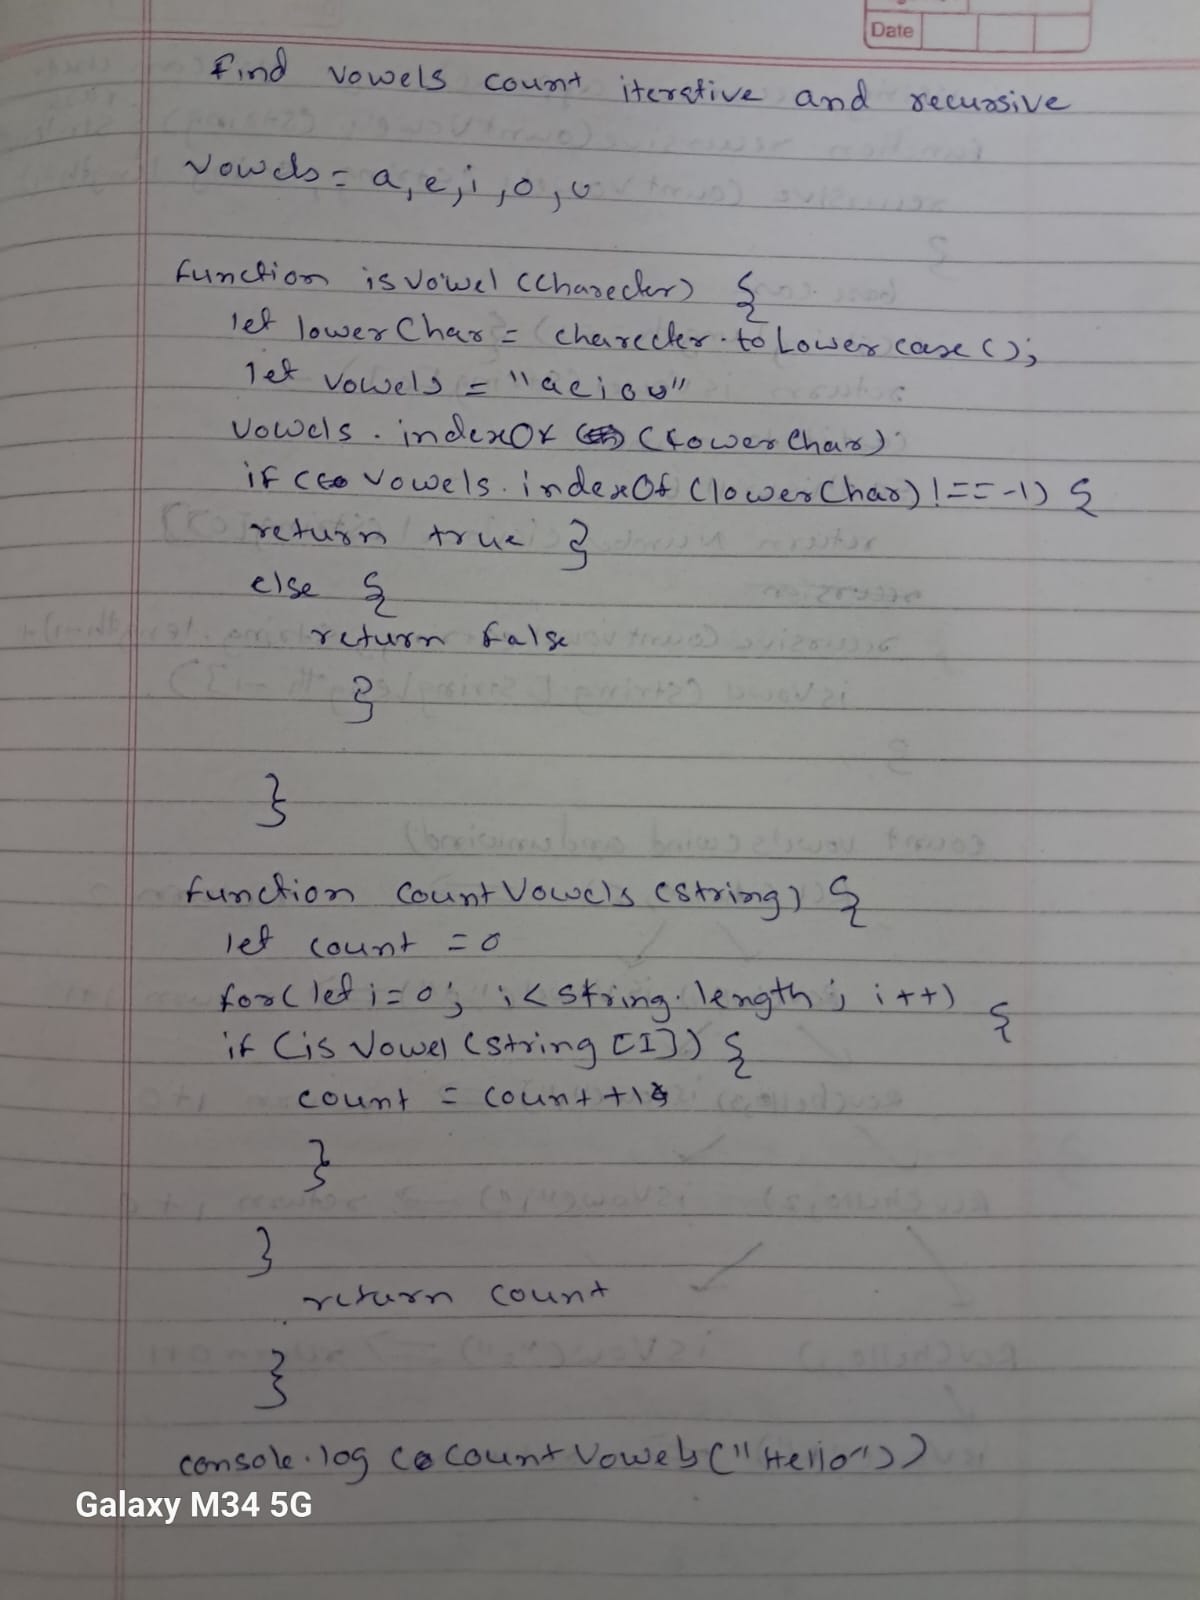 Date
find vowels count iterative and recursive
vowels = a, e, i, o, u
function isVowel (charecter) {
let lowerChar = charecter.toLowercase();
let vowels = "aeiou"
vowels.indexOf (lowerChar)
if (vowels.indexOf (lowerChar) !== -1) {
return true }
else {
return false
}
}
function countVowels (string) {
let count = 0
for( let i = 0; i < string.length; i++) {
if (isVowel (string [I]) {
count = count +1
}
}
return count
}
console.log (countVowels ("Hello"))
Galaxy M34 5G